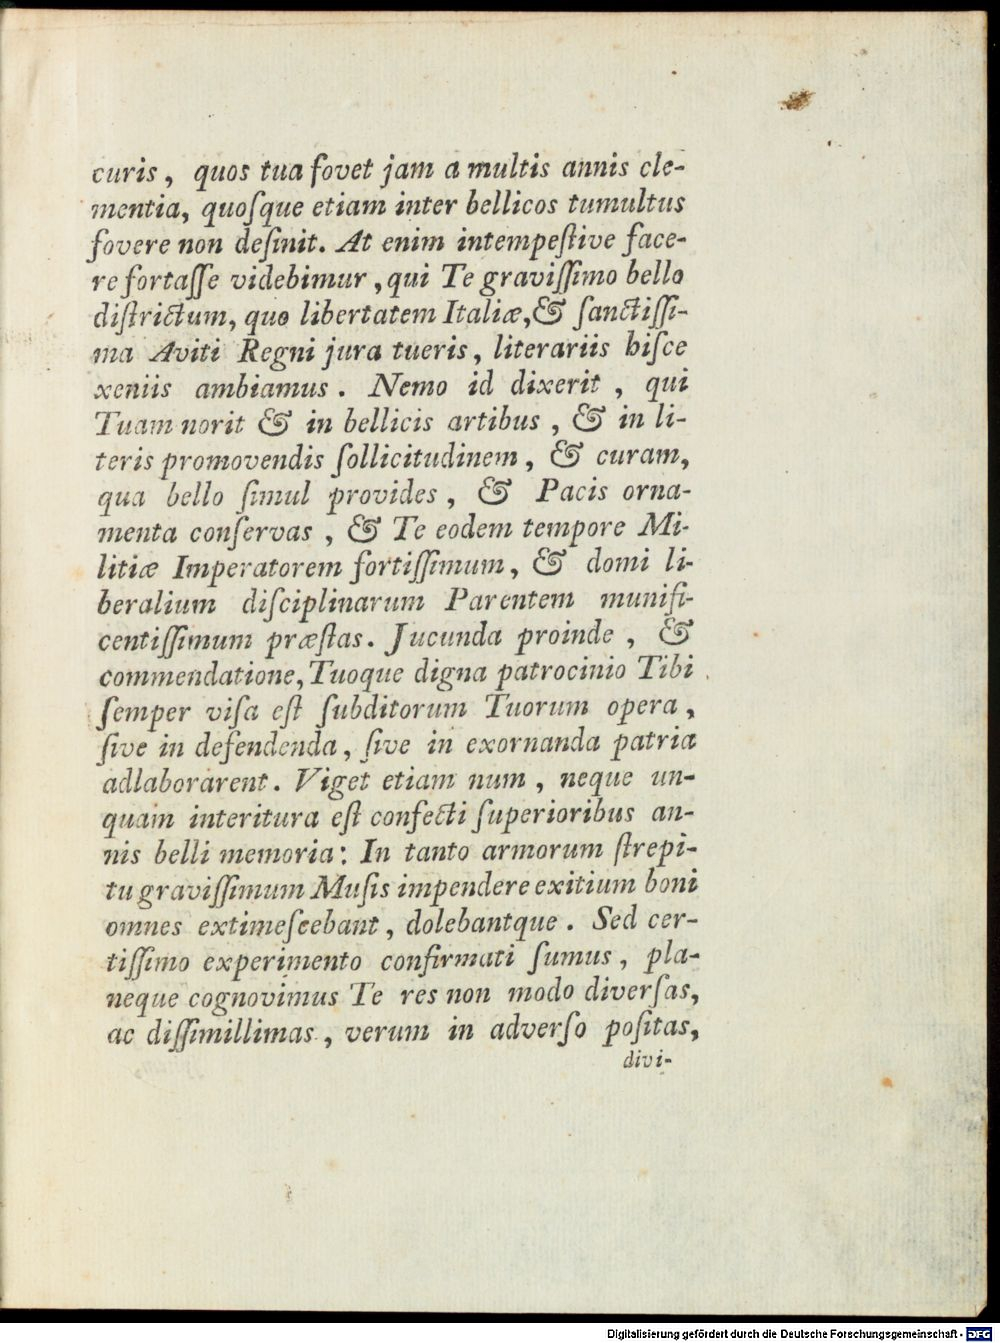 curis, quos tua fovet jam a multis annis cle-
mentia, quoſque etiam inter bellicos tumultus
fovere non deſinit. At enim intempeſtive face-
re fortaſſe videbimur, qui Te graviſſimo bello
diſtrictum, quo libertatem Italiæ, & ſanctiſſi-
ma Aviti Regni jura tueris, literariis hiſce
xeniis ambiamus. Nemo id dixerit, qui
Tuam norit & in bellicis artibus, & in li-
teris promovendis ſollicitudinem, & curam,
qua bello ſimul provides, & Pacis orna-
menta conſervas, & Te eodem tempore Mi-
litiæ Imperatorem fortiſſimum, & domi li-
beralium diſciplinarum Parentem munifi-
centiſſimum præſtas. Jucunda proinde, &
commendatione, Tuoque digna patrocinio Tibi
ſemper viſa eſt ſubditorum Tuorum opera,
ſive in defendenda, ſive in exornanda patria
adlaborarent. Viget etiam num, neque un-
quam interitura eſt confecti ſuperioribus an-
nis belli memoria: In tanto armorum ſtrepi-
tu graviſſimum Muſis impendere exitium boni
omnes extimeſcebant, dolebantque. Sed cer-
tiſſimo experimento confirmati ſumus, pla-
neque cognovimus Te res non modo diverſas,
ac diſſimillimas, verum in adverſo poſitas,
divi-
Digitalisierung gefördert durch die Deutsche Forschungsgemeinschaft - DFG